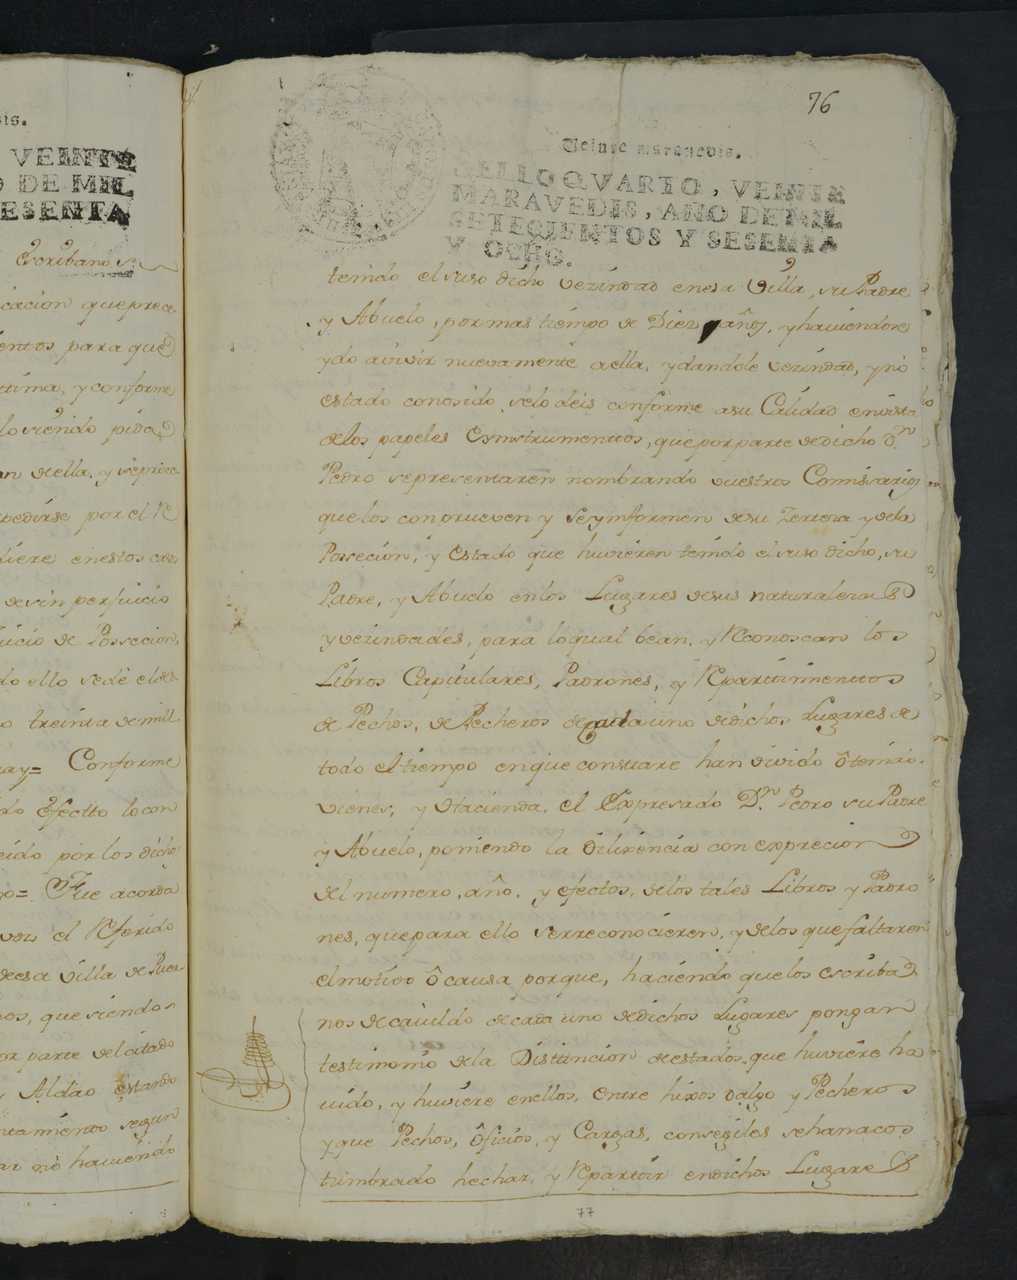 is.
VEINTE
O DE MIL
ESENTA
Escribano
icacion que prece
entos para que
ttima, y conforme
lo siendo pida
an de ella, y se proce
pedirse por el R
diere en estos cas
de sin perjuicio
uicio de Possecion,
do ello se dé el des
o treinta de mill
ay= Conforme
do Efectto lo con
eido por los dicho
yo= Fue acorda
vos el Referido
de esa Villa de Puer
os, que siendo
or parte del citado
Aldao estando
ntamiento segun
ar no haciendo
76
Veinte maravedis.
SELLO QVARTO, VEINTE
MARAVEDIS, AÑO DE MIL
SETECIENTOS Y SESENTA
Y OCHO.
tenido el suso dicho vezindad en esa Villa, su Padre
y Abuelo, por mas tiempo de Diez años, y haviendose
ydo avivir nuevamente a ella, y dandole vezindad, y nó
estado conosido, se lo deis conforme a su Calidad en vista
de los papeles e ynstrumenttos, que por parte de dicho Dn.
Pedro se presentaren nombrando vuestros Comisarios
que los conprueven y se ynformen de su Zerteza y de la
Posecion, y Estado que huvieren tenido el suso dicho, su
Padre, y Abuelo en los Lugares de sus naturalezas
y vezindades, para lo qual bean, y Reconoscan los
Libros Capitulares, Padrones, y Repartimienttos
de Pechos, de Pecheros de Cada uno de dichos Lugares de
todo el tiempo en que constare han vivido ô tenido
vienes, y Hacienda, el Expresado Dn. Pedro su Padre
y Abuelo, poniendo la Dilixencia con exprecion
del numero, año, y efectos, de los tales Libros y Padro
nes, que para ello se rreconocieren, y de los que faltaren
el motivo ô causa porque, haciendo que los escriba
nos de cavildo de cada uno de dichos Lugares pongan
testimonio de la Distincion de estados, que huviere ha
vido, y huviere en ellos, entre hixos dalgo y Pecheros
y que Pechos, ôficios, y Cargas, consegiles se han acos
tumbrado hechar, y Repartir en dichos Lugares
77